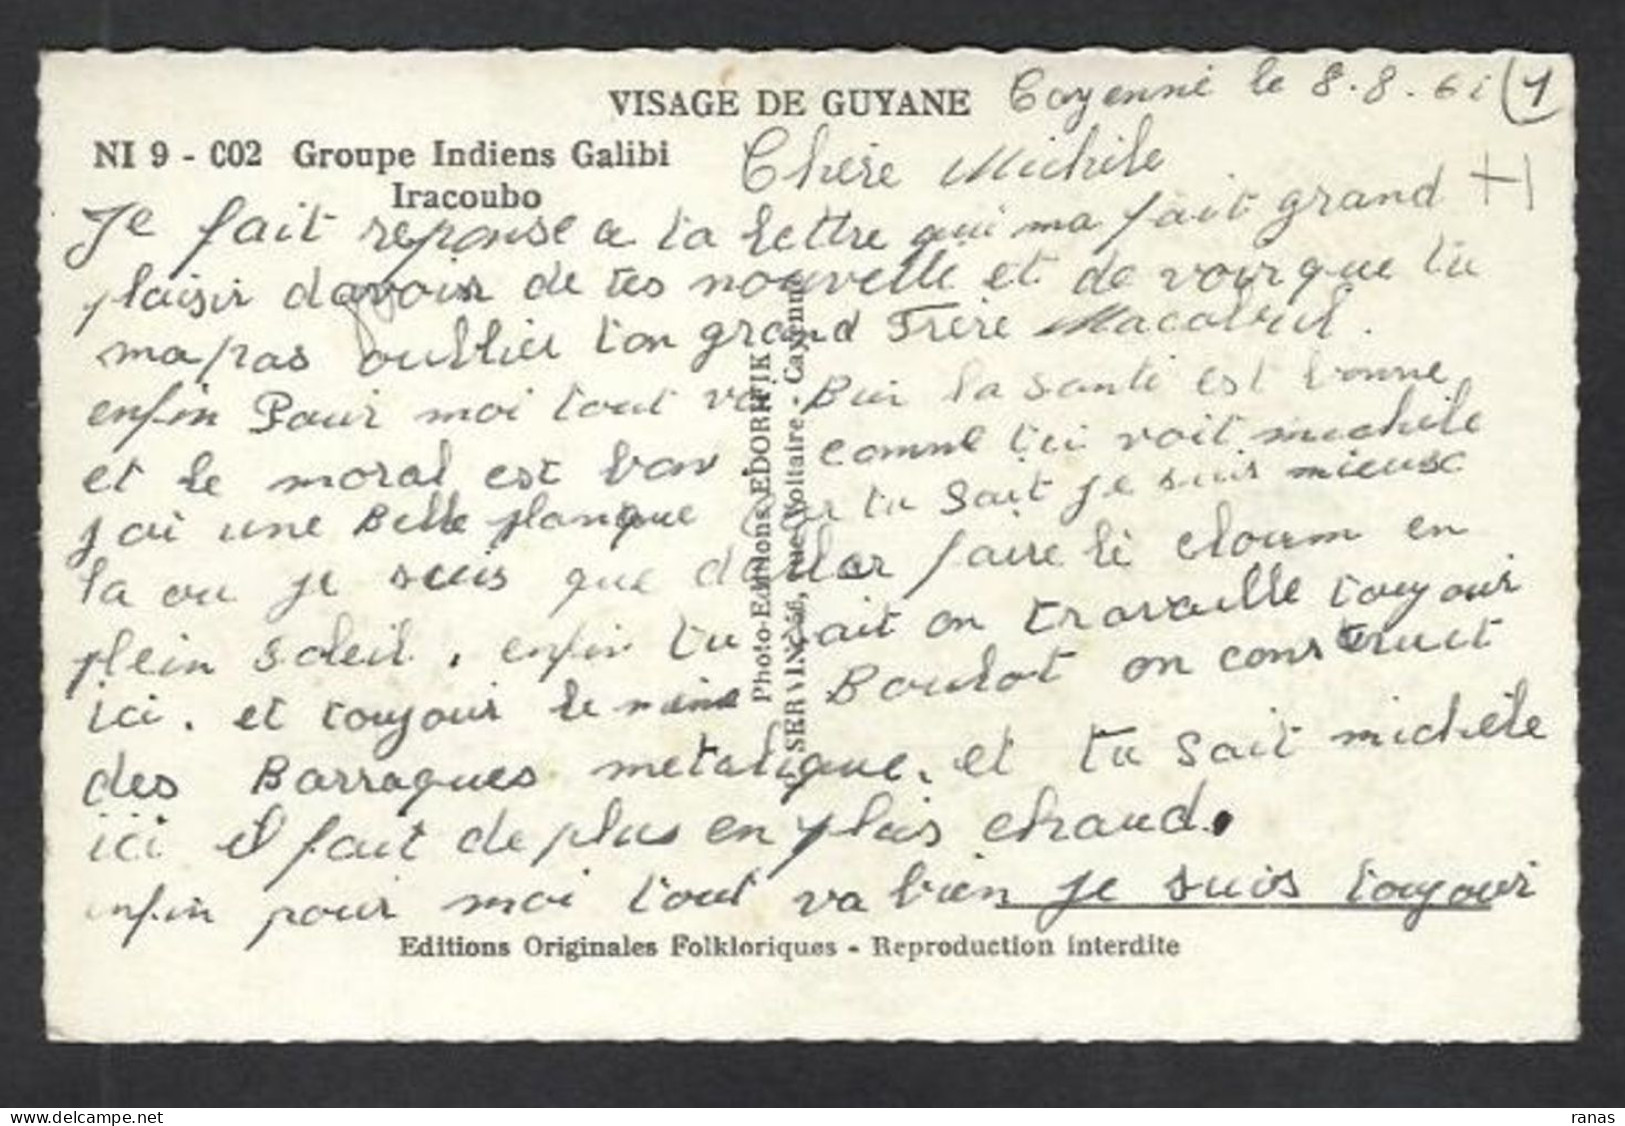 VISAGE DE GUYANE
Cayenne le 8.8.61 1
NI 9 - C02 Groupe Indiens Galibi
Iracoubo
Chère Michile
Je fait reponse a ta lettre qui ma fait grand
plaisir davoir de tes nouvelle et de voir que tu
ma pas oublier ton grand Frère
enfin Pour moi tout va Bien la santé est bonne
et le moral est bon comme tu voit michile
j'ai une Belle planque car tu sait je suis mieusc
la ou je suis que faire le en
plein soleil. enfin tu sait on travaille toujour
ici. et toujour le même Boulot on construit
des Barraques metalique. et tu sait michèle
ici il fait de plus en plus chaud.
enfin pour moi tout va bien je suis toujour
Photo-Editions EDORFIK
SERVINCEE, rue Voltaire - Cayenne
Editions Originales Folkloriques - Reproduction interdite
ranas